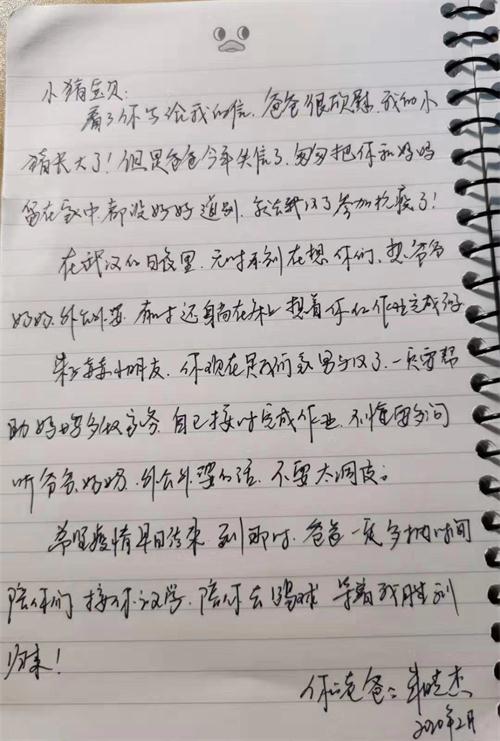 小猪宝贝:
看了你写给我的信,爸爸很欣慰,我的小
猪长大了!但是爸爸今年失信了,匆匆把你和妈妈
留在家中,都没好好道别,就去武汉参加抗疫了!
在武汉的日夜里,无时不刻在想你们,想爷爷
奶奶、外公外婆,有时还躺在床上想着你的作业完成
小朋友,你现在是我们家男子汉了,一定要帮
助妈妈多做家务,自己按时完成作业,不懂要多问
听爷爷奶奶、外公外婆的话,不要太调皮。
希望疫情早日结束,到那时,爸爸一定多抽时间
陪你们,接你放学,陪你去踢球,等着我胜利
归来!
你的老爸:
2020年2月